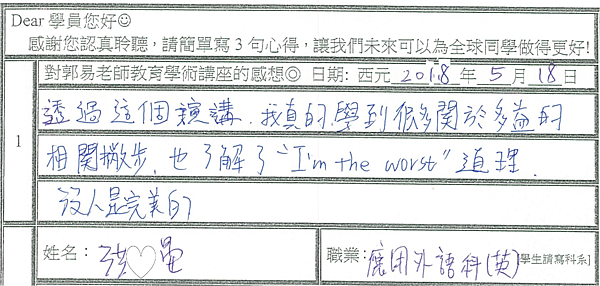 Dear 學員您好☺
感謝您認真聆聽，請簡單寫 3 句心得，讓我們未來可以為全球同學做得更好!
對郭易老師教育學術講座的感想◎ 日期: 西元 2018 年 5 月 18 日
1
透過這個演講，我真的學到很多關於多益的
相關撇步，也了解了"I'm the worst"道理，
沒人是完美的
姓名： ♡
職業： 應用外語科(英) [學生請寫科系]